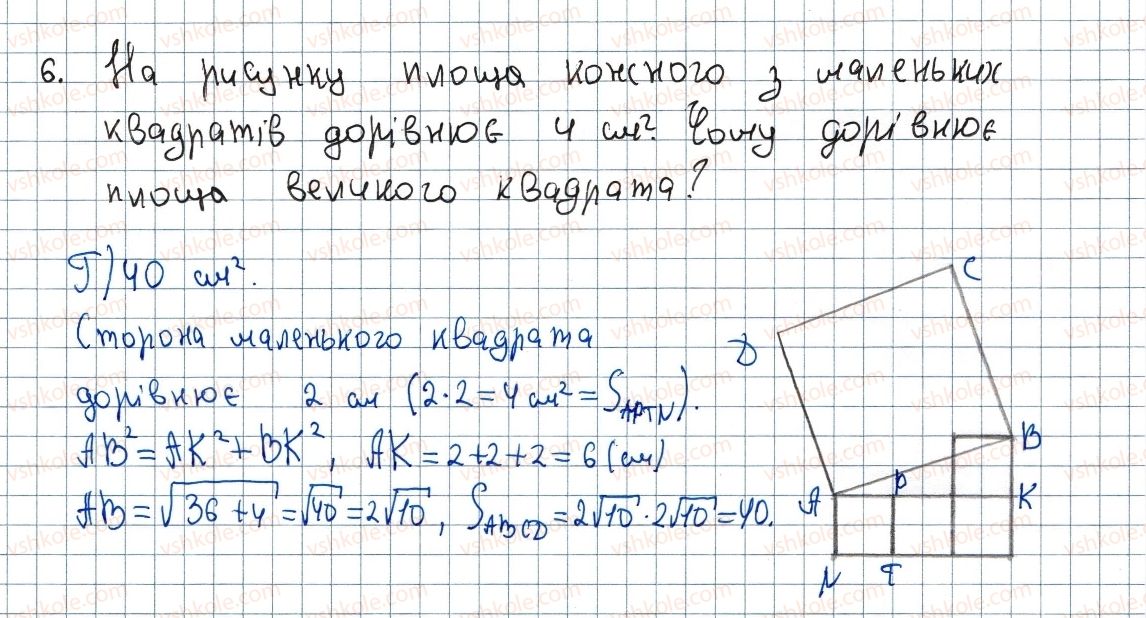 6. На рисунку площа кожного з маленьких
квадратів дорівнює 4 см². Чому дорівнює
площа великого квадрата?
Г) 40 см².
Сторона маленького квадрата
дорівнює 2 см (2·2=4 см²=S_APTN).
AB²=AK²+BK², AK=2+2+2=6 (см)
AB=√36+4=√40=2√10, S_ABCD=2√10·2√10=40.
C
D
B
P
A
K
N
T
vshkole.com